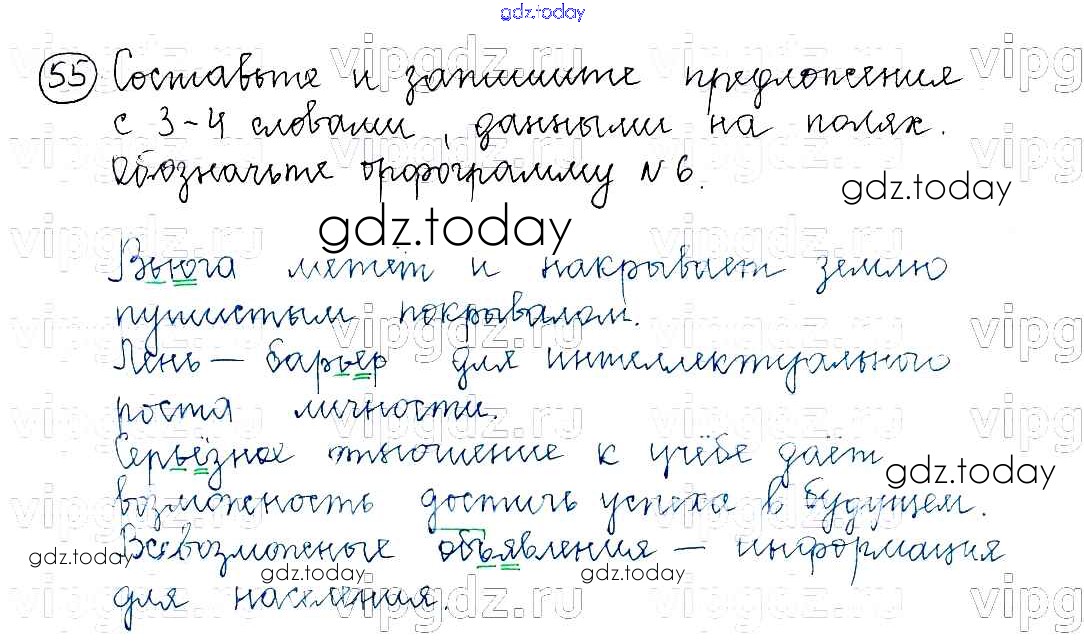 gdz.today
55 Составьте и запишите предложения
с 3-4 словами, данными на полях.
Обозначьте орфограмму №6.
gdz.today
gdz.today
Вьюга метёт и накрывает землю
пушистым покрывалом.
Лень — барьер для интеллектуального
роста личности.
Серьёзное отношение к учёбе даёт
gdz.today
возможность достичь успеха в будущем.
Всевозможные объявления — информация
gdz.today gdz.today gdz.today
для населения.
vipgdz.ru